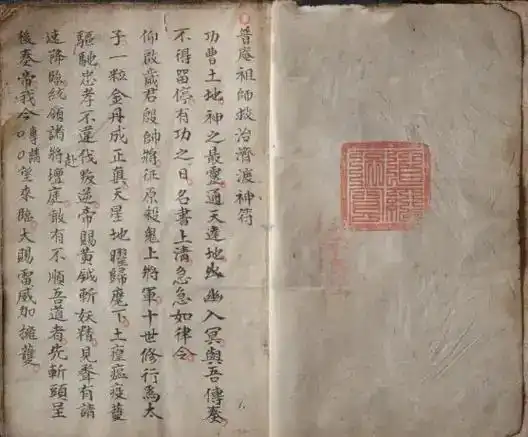 普庵祖師救治濟渡神符
功曹土地神之最靈通天達地出幽入冥與吾傳奏
不得留停有功之日名書上清急急如律令
仰啟歲君殷師將征原殺鬼上將軍十世修行為太
子一粒金丹成正真天星地曜歸麾下土瘟瘟疫蕓
驅馳忠孝不違伐叛逆帝賜黃鉞斬妖精見聲有請
速降臨統領諸將赴壇庭敢有不順吾道者先斬頭呈
後奏帝我今專請望來臨大賜雷威加擁護